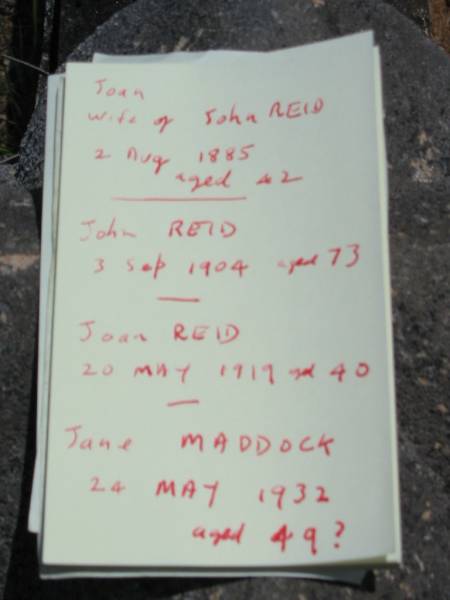 Joan
wife of John REID
2 Aug 1885
aged 42
John REID
3 Sep 1904 aged 73
Joan REID
20 MAY 1919 agd 40
Jane MADDOCK
24 MAY 1932
aged 49?